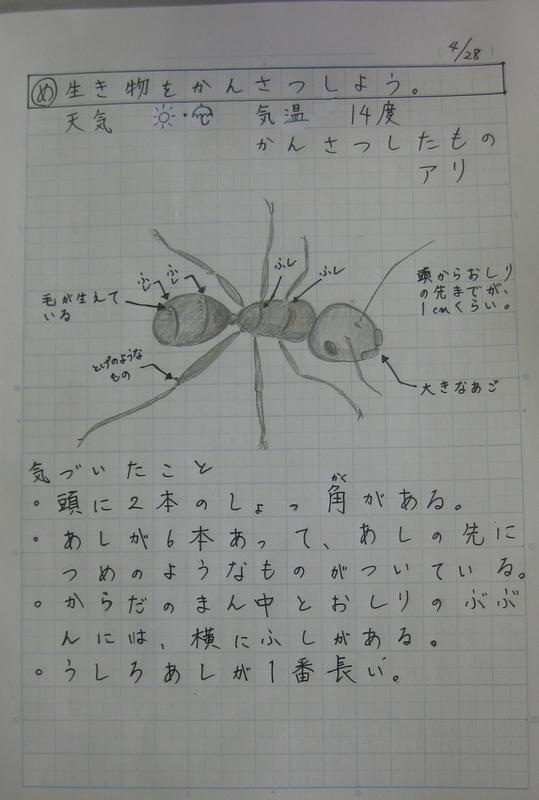 4/28
め 生き物をかんさつしよう。
天気 ・ 気温 14度
かんさつしたもの
アリ
ふし
ふし
ふし
ふし
毛が生えて
いる
頭からおしり
の先までが、
1cmくらい。
とげのような
もの
大きなあご
気づいたこと
・頭に2本のしょっ角がある。
かく
・あしが6本あって、あしの先に
つめのようなものがついている。
・からだのまん中とおしりのぶぶ
んには、横にふしがある。
・うしろあしが1番長い。